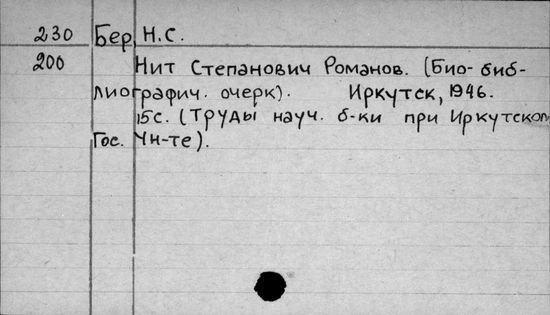 230 Бер, Н.С.
200 Нит Степанович Романов. (Био-биб-
лиографич. очерк). Иркутск, 1946.
15с. (Труды науч. б-ки при Иркутском
Гос. Ун-те).